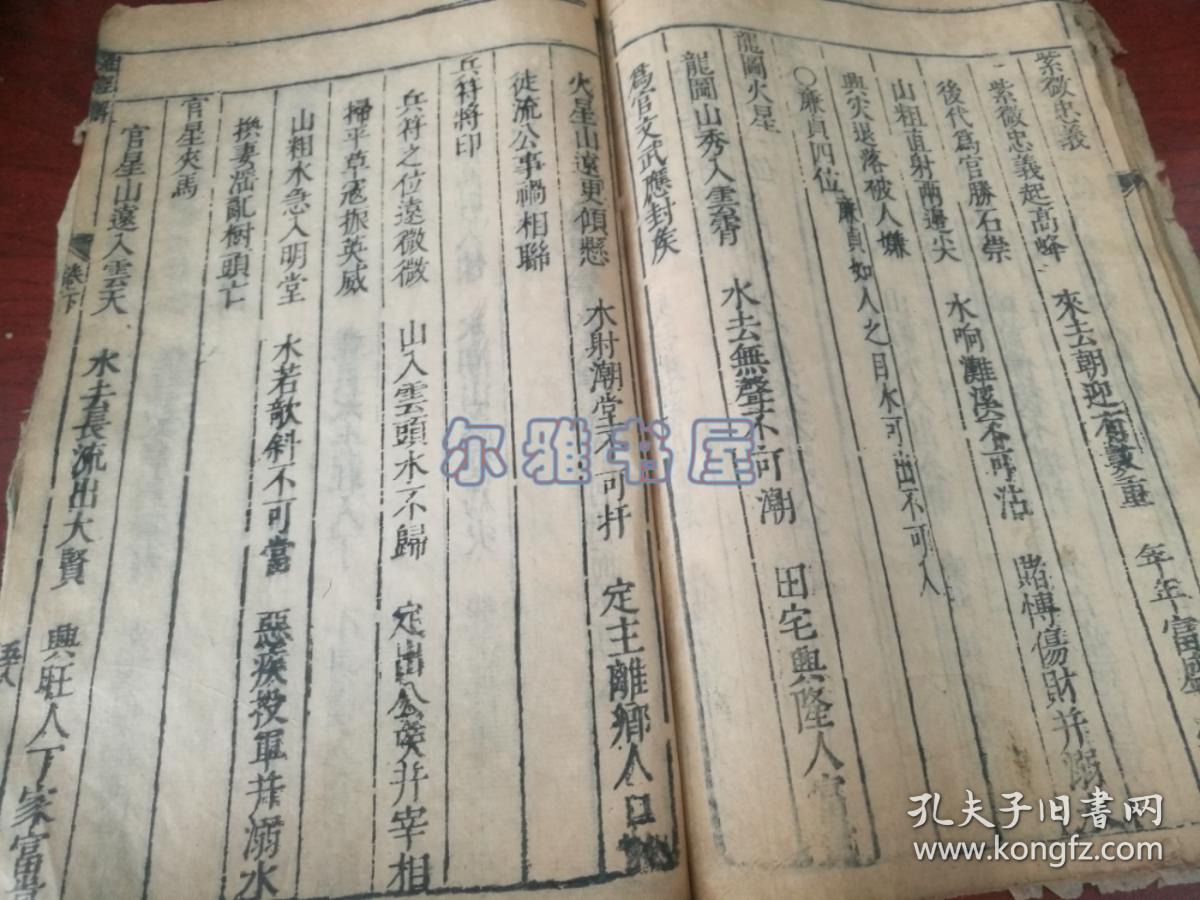 紫微忠義
紫微忠義起高峰 來去朝迎有數重 年年富
後代爲官勝石崇
山粗直射兩邊尖 水响灘溪不可沾 賭博傷財并溺
興灾退落破人嫌
○廉貞四位 廉貞如人之目水可出不可入
龍圖火星
龍圖山秀入雲霄 水去無聲不可潮 田宅興隆人
爲官文武應封矦
火星山遠更傾懸 水射潮堂不可扞 定主離鄉人口
徒流公事禍相聯
兵符將印
兵符之位遠微微 山入雲頭水不歸 定出公矦并宰相
掃平草寇振英威
山粗水急入明堂 水若欹斜不可當 惡疾投軍并溺水
損妻滛亂樹頭亡
官星夾馬
官星山遠入雲天 水去長流出大賢 興旺人丁家富
卷下
五八
尔雅书屋
孔夫子旧书网
www.kongfz.com